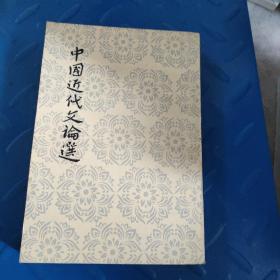 中國近代文論選